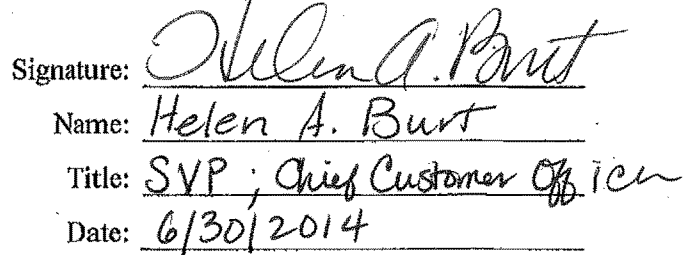 Signature: Helen A. Burt
Name: Helen A. Burt
Title: SVP ; Chief Customer Officer
Date: 6/30/2014